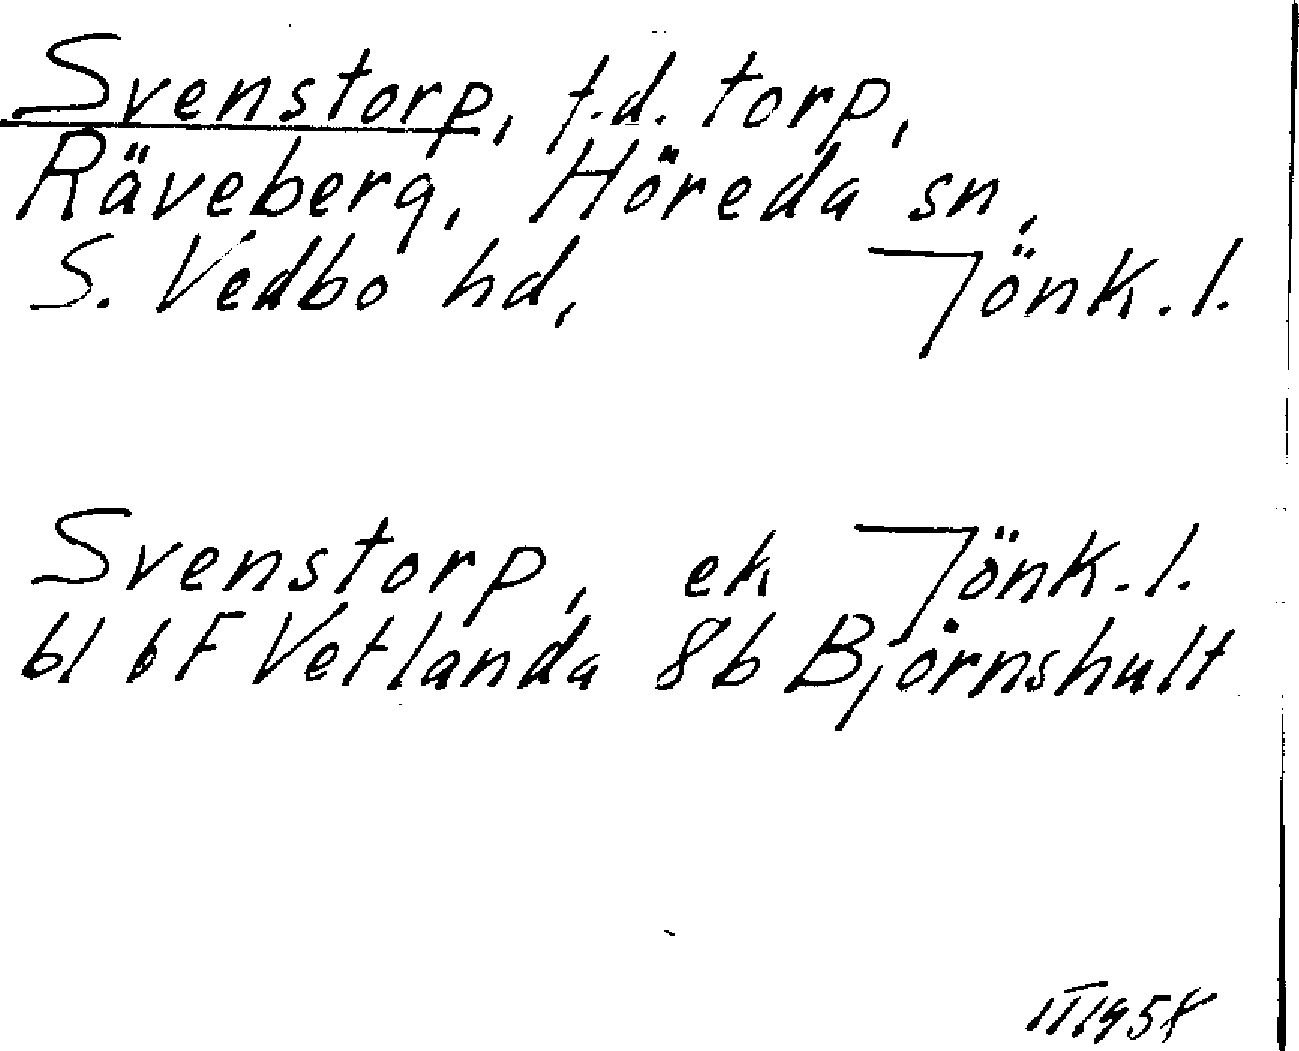 Svenstorp, f.d. torp,
Räveberg, Höreda sn,
S. Vedbo hd, Jönk. l.
Svenstorp, ek Jönk. l.
bl 6F Vetlanda 8b Björnshult